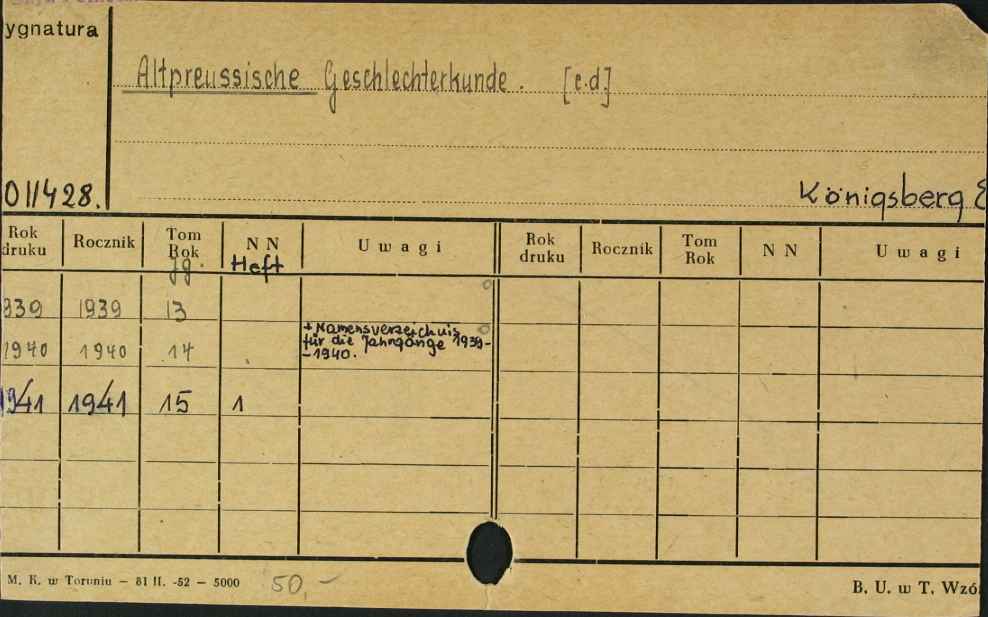 ygnatura
Altpreussische Geschlechterkunde. [c.d.]
011428.
Königsberg
Rok druku Rocznik Tom Rok N N Uwagi Rok druku Rocznik Tom Rok N N Uwagi
Jg. Heft
939 1939 13
+ Namensverzeichnis
für die Jahrgänge 1939-
-1940.
1940 1940 14
1941 1941 15 1
M. K. w Toruniu — 81 II. -52 — 5000 50,-
B. U. w T. Wzó